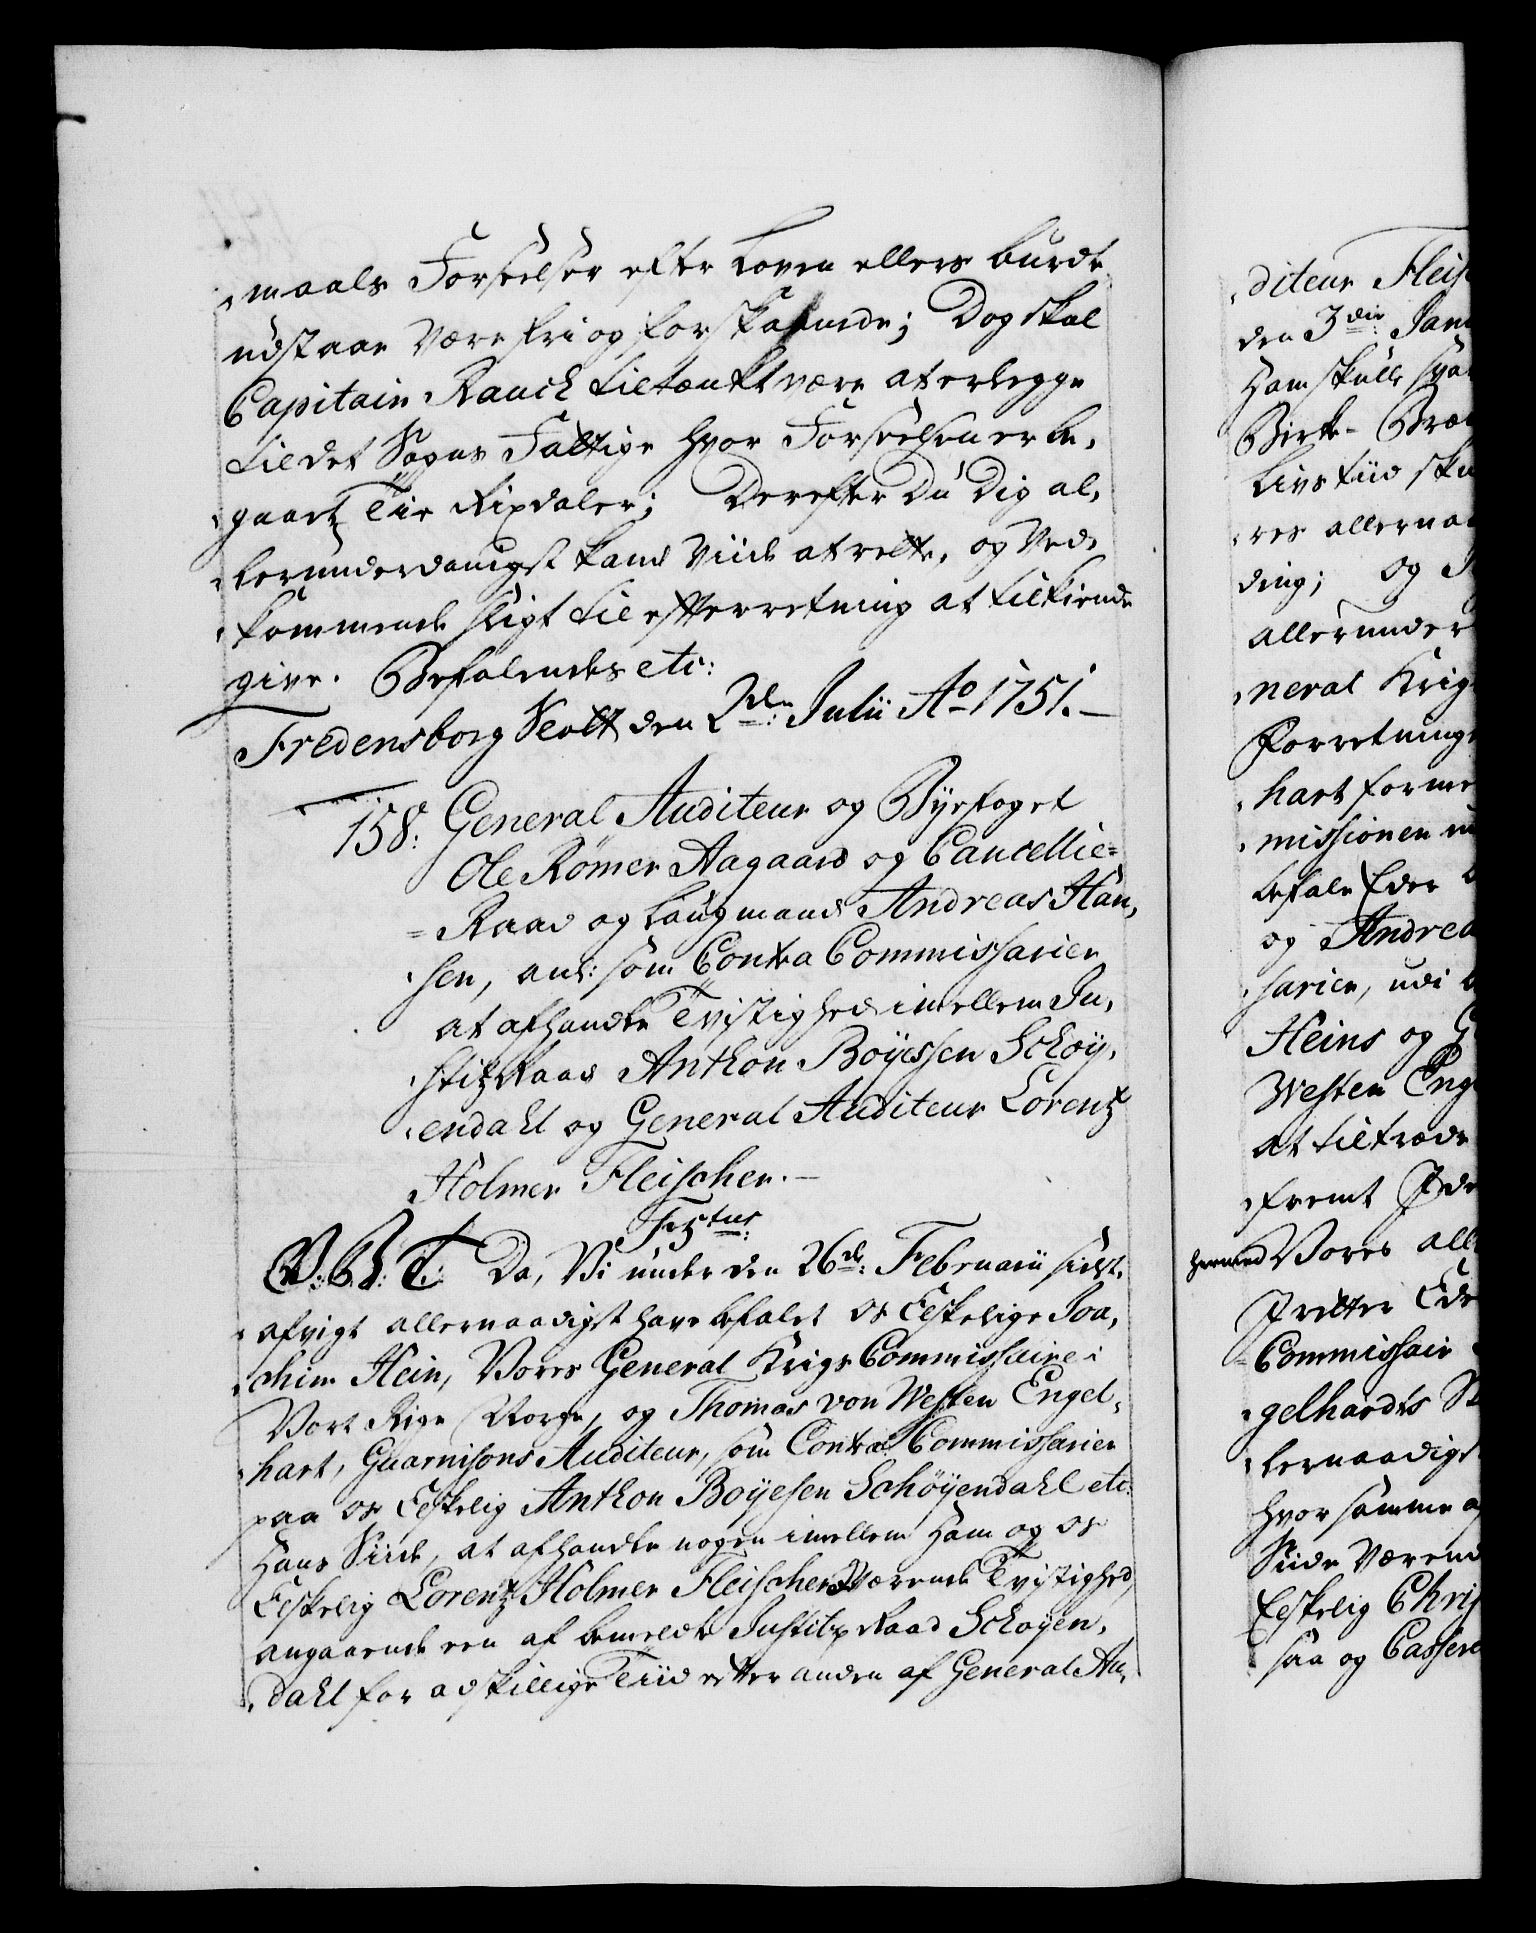 maals Forseelser efter Loven ellers burde
udstaae være frie og forskaanede; Dog skal
Capitain Rauch tiltænkt være at erlegge
til det Sogns Fattige hvor Forseelsen er be-
gaaet Tie Rixdaler; Derefter Du Dig al-
lerunderdanigst kand viide at rette, og Ved-
kommende sligt til efterretning at tilkiende
give. Befalendes etc:
Fredensborg Slott den 2de: Julii Ao 1751.
158. General Auditeur og Byefoget
Ole Rømer Aagaard og Cancellie-
Raad og Laugmand Andreas Han-
sen, anl: som Contra Commissarier
at afhandle Tvistighed imellem Ju-
stitz Raad Anthon Boyessen Schøy-
endahl og General Auditeur Lorentz
Holmer Fleischer.
Fr: 5tus:
V. G. T. Da, Vi under den 26de: Februarii sidst-
afvigt allernaadigst have befalet Os Elskelige Joa-
chim Hein, Vores General Krigs Commissaire i
Vort Rige Norge, og Thomas von Westen Engel-
hart, Guarnisons Auditeur, som Contra Commissarier
paa Os Elskelig Anthon Boyesen Schøyendahl etc:
Hans Siide, at afhandle nogen imellem Ham og Os
Elskelig Lorentz Holmer Fleischer Værende Tvistighed,
angaaende een af bemeldte Justitz Raad Schøyen-
dahl for adskillige Tiid efter anden af General Au-
diteur Fleis
den 3die: Jan
Ham skulle
Birke-
Livs tiid
res allernaa
ding; og
allerunder
neral Krig
Forretning
hart forme
missionen
befale Eder
og Andrea
sarier, udi
Heins og
Westen Eng
at tiltræde
fremt
hermed Vores all
Eder
Commissair
gelhardts
lernaadigst
hvor samme
Siide Værend
Elskelig Chris
saa og Cassere